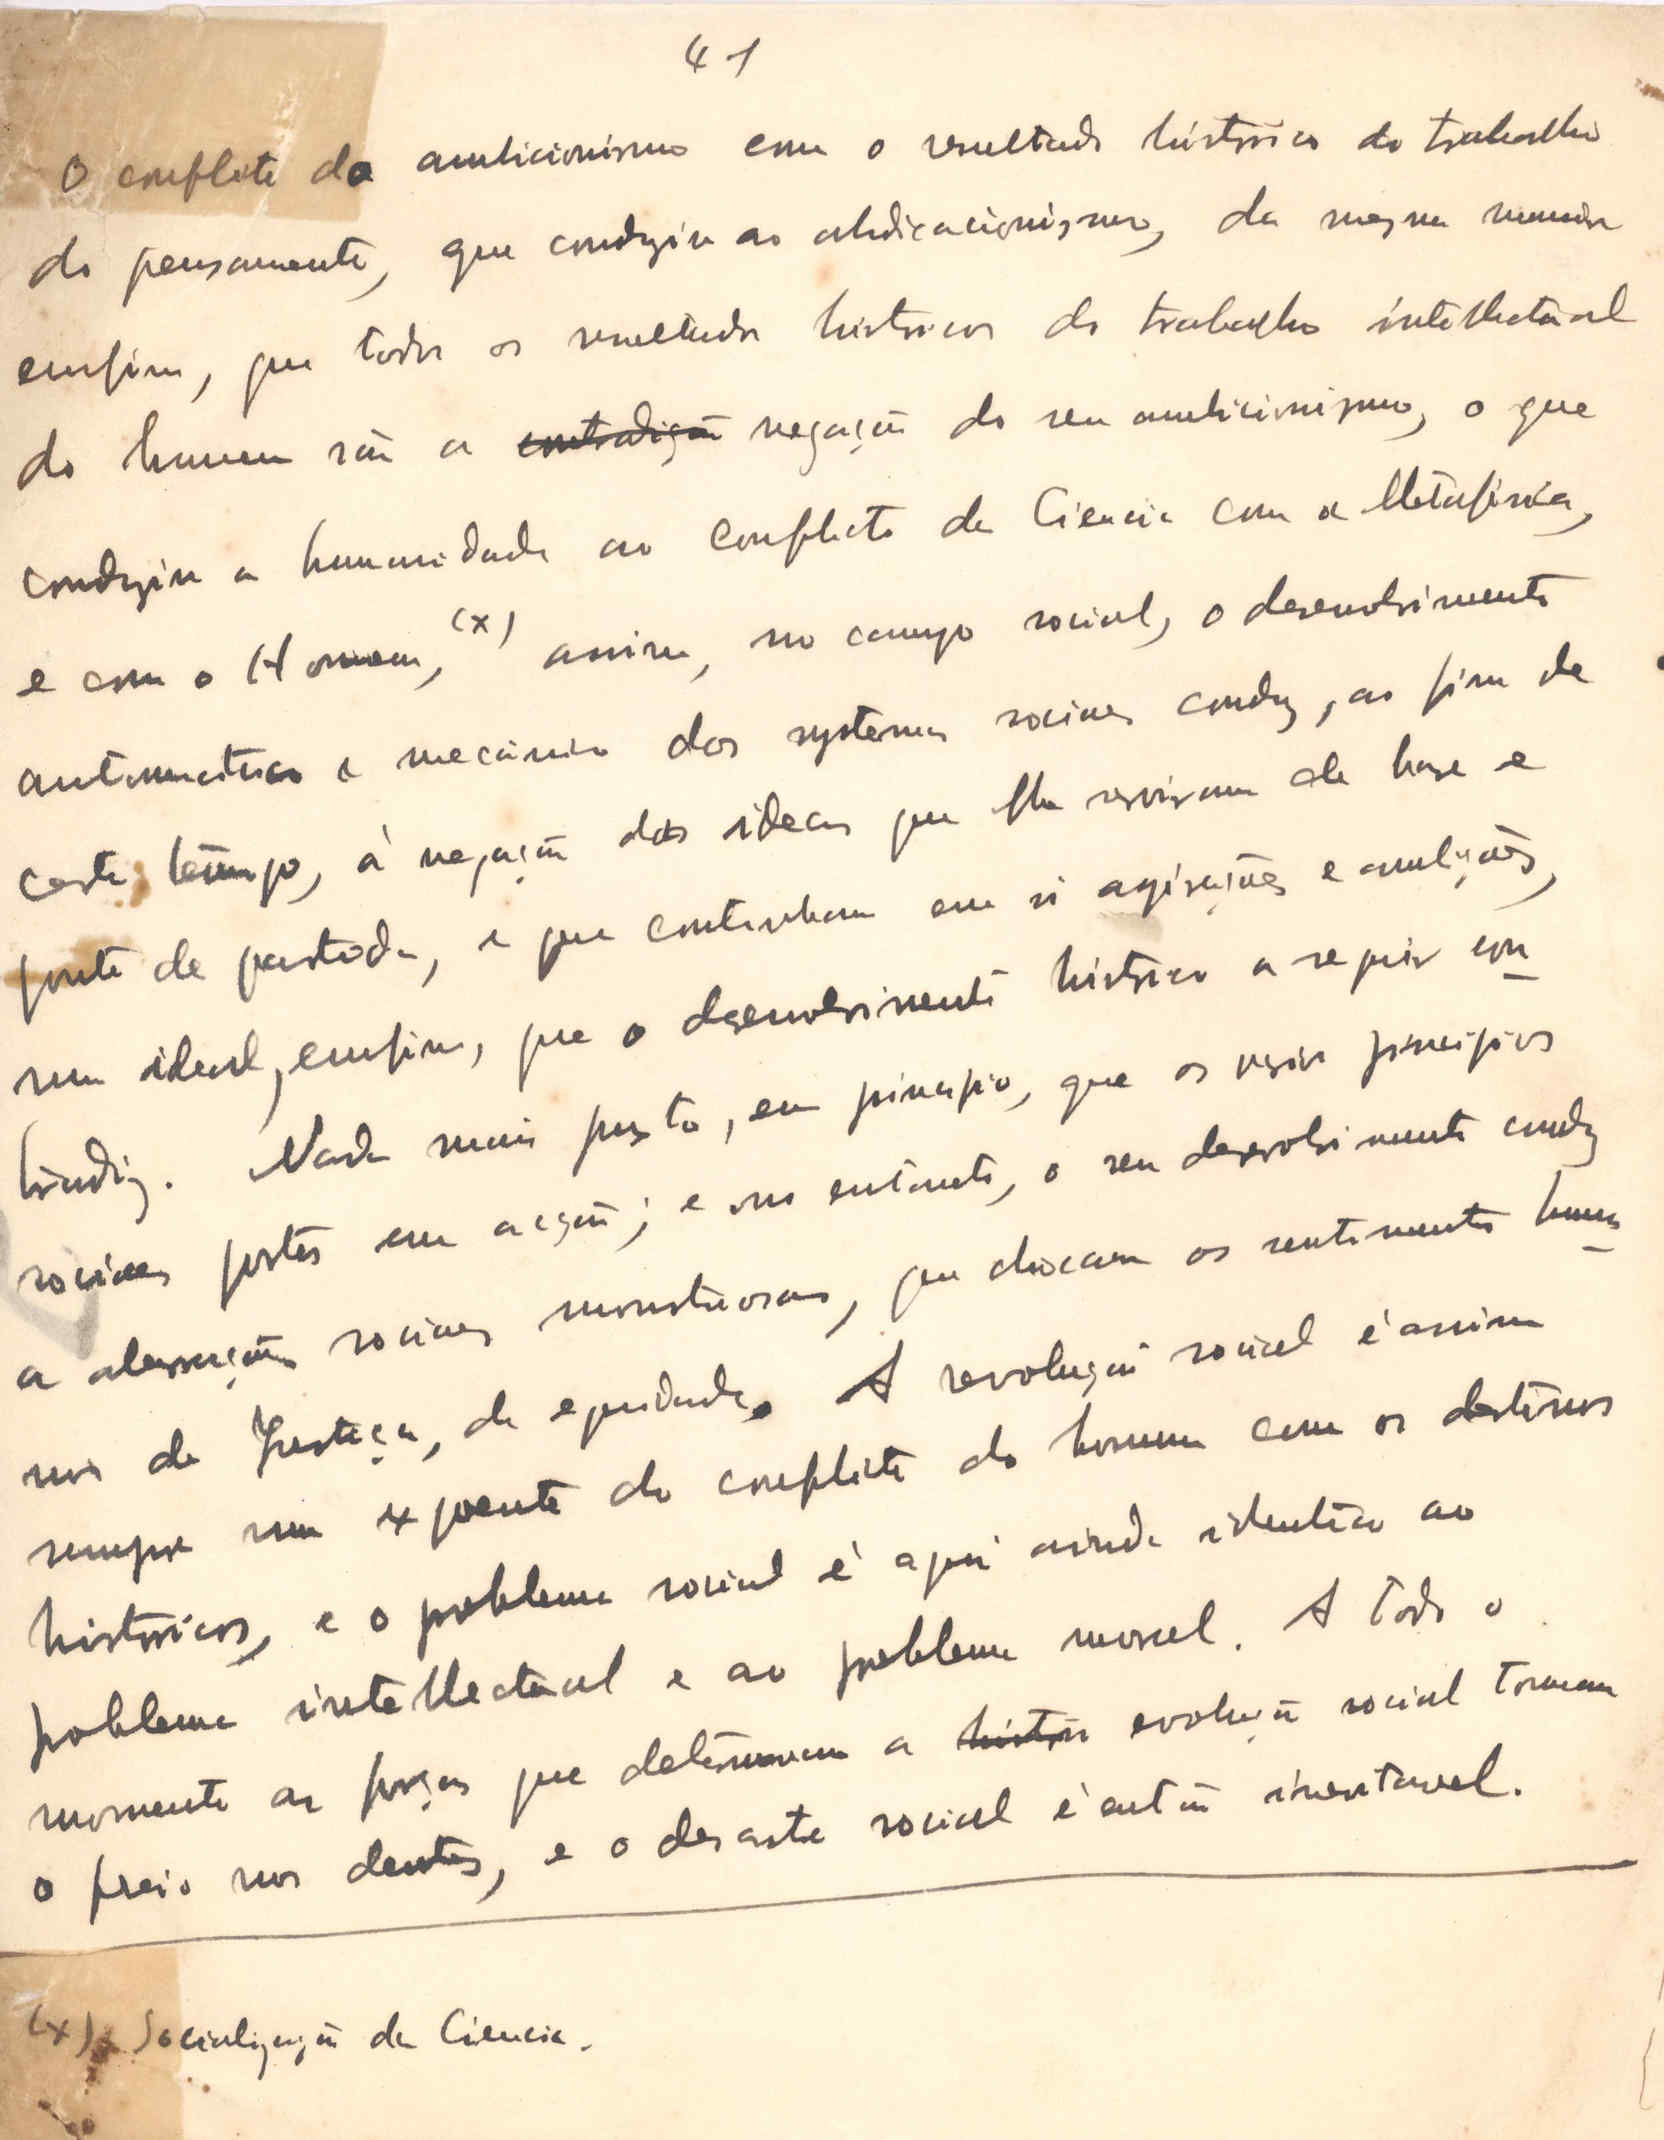 41
O conflito do ambicionismo com o resultado historico do trabalho
do pensamento, que conduziu ao abdicacionismo, da mesma maneira
emfim, que todos os resultados historicos do trabalho intellectual
do homem são a contradição negação do seu ambicionismo, o que
conduziu a humanidade ao conflicto da Ciencia com a Metafisica,
e com o Homem, (x) assim, no campo social, o desenvolvimento
automatico e mecanico dos systemas sociaes conduz, ao fim de
certo tempo, à negação das ideas que lhe serviram de base e
ponto de partida, e que continham em si aspirações e ambições,
um ideal, emfim, que o desenvolvimento historico a seguir con
tradiz. Nada mais justo, em principio, que os varios principios
sociaes postos em acção; e no entanto, o seu desenvolvimento conduz
a aberrações sociaes monstruosas, que chocam os sentimentos huma
nos de Justiça, de equidade. A revolução social é assim
sempre um expoente do conflicto do homem com os destinos
historicos, e o problema social é aqui ainda identico ao
problema intellectual e ao problema moral. A todo o
momento as forças que determinam a evolução social tomam
o freio nos dentes, e o desastre social é então inevitavel.
(x) Socialização da Ciencia.